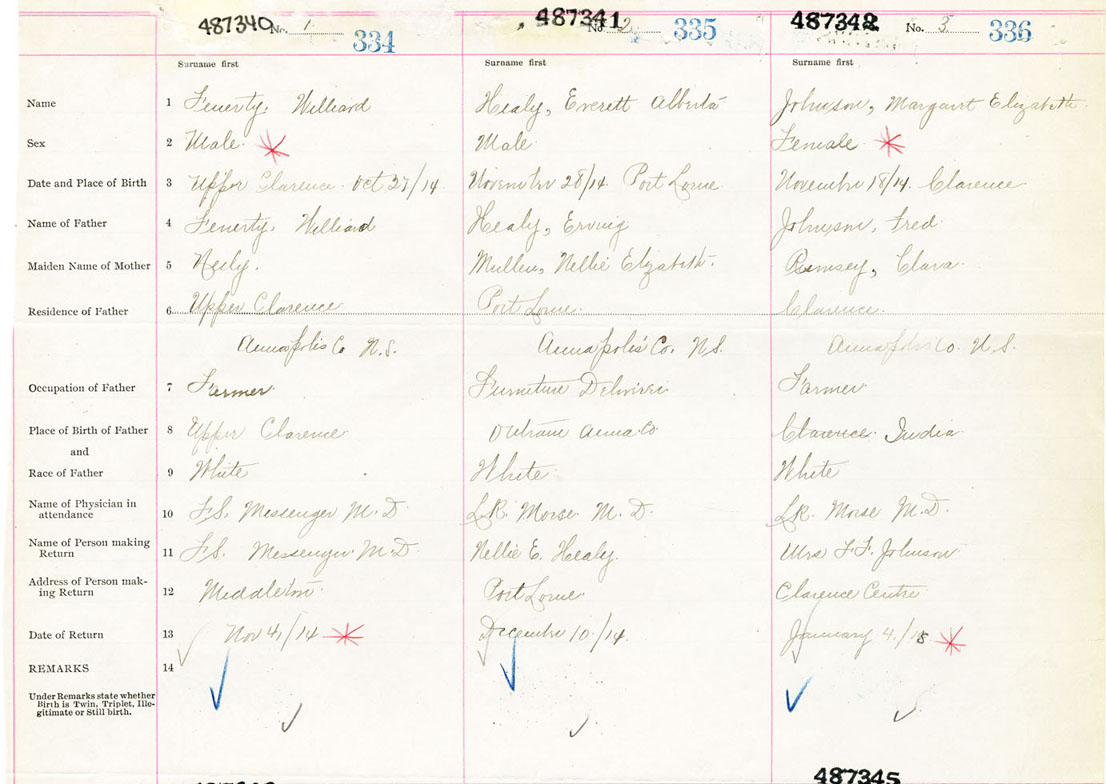 487340 No. 1 334 487341 No. 2 335 487342 No. 3 336
Surname first Surname first Surname first
Name 1 Fenerty, Williard Healy, Everett Alberta Johnson, Margaret Elizabeth
Sex 2 Male Male Female
Date and Place of Birth 3 Upper Clarence Oct 27/14 November 28/14 Port Lorne November 18/14 Clarence
Name of Father 4 Fenerty, Williard Healy, Erving Johnson, Fred
Maiden Name of Mother 5 Neily. Mullen, Nellie Elizabeth. Rumsey, Clara
Residence of Father 6 Upper Clarence Port Lorne Clarence
Annapolis Co N.S. Annapolis Co. N.S. Annapolis Co. N.S.
Occupation of Father 7 Farmer Furniture Farmer
Place of Birth of Father 8 Upper Clarence Outram Anna Co Clarence India
and
Race of Father 9 White White White
Name of Physician in
attendance 10 F.S. Messenger M.D. L.R. Morse M.D. L.R. Morse M.D.
Name of Person making
Return 11 F.S. Messenger M.D. Nellie E. Healy. Mrs F.F. Johnson
Address of Person mak-
ing Return 12 Middleton Port Lorne Clarence Centre
Date of Return 13 Nov 4/14 December 10/14 January 4/15
REMARKS 14
Under Remarks state whether
Birth is Twin, Triplet, Ille-
gitimate or Still birth.
487345